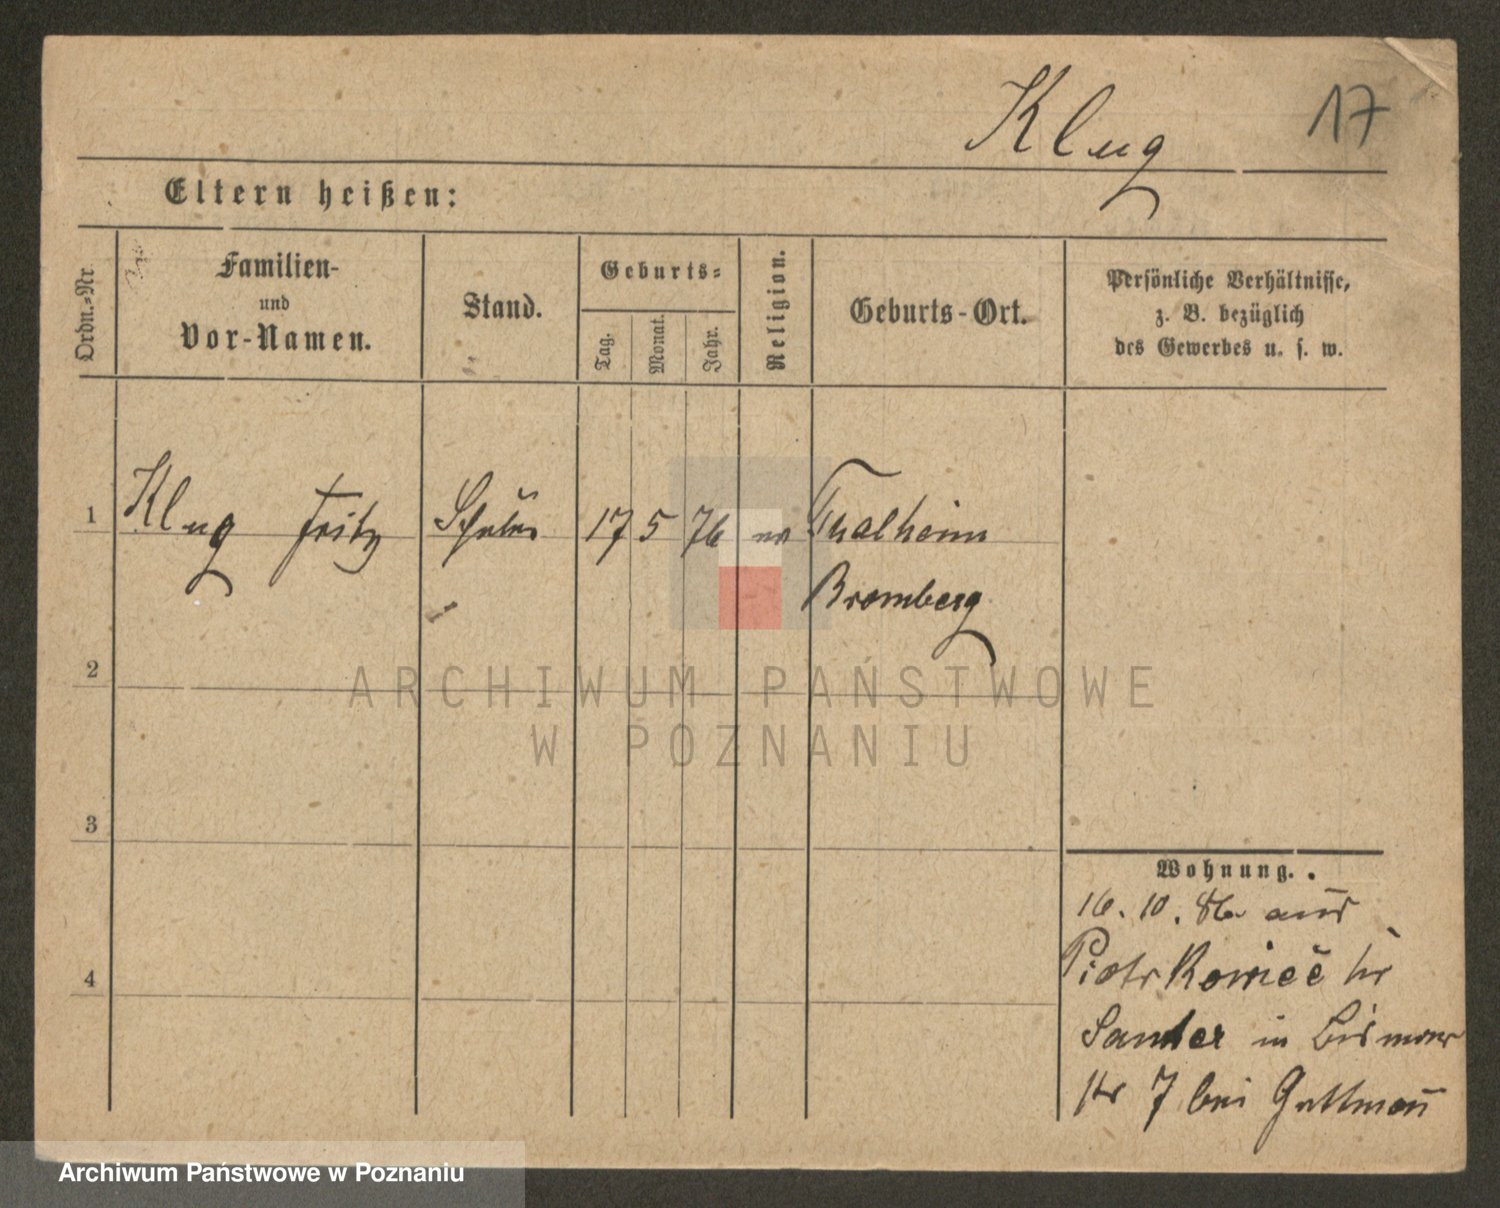 Klug 17
Eltern heißen:
Ordn.=Nr.
Familien-
und
Vor-Namen.
Stand.
Geburts=
Tag.
Monat.
Jahr.
Religion.
Geburts-Ort.
Persönliche Verhältnisse,
z. B. bezüglich
des Gewerbes u. s. w.
1 Klug Fritz Schüler 17 5 76 Thalheim
Bromberg
2
3
4
Wohnung.
16. 10. 86 aus
Kr
Samter in Bismarck
str 7 bei
ARCHIWUM PAŃSTWOWE
W POZNANIU
Archiwum Państwowe w Poznaniu